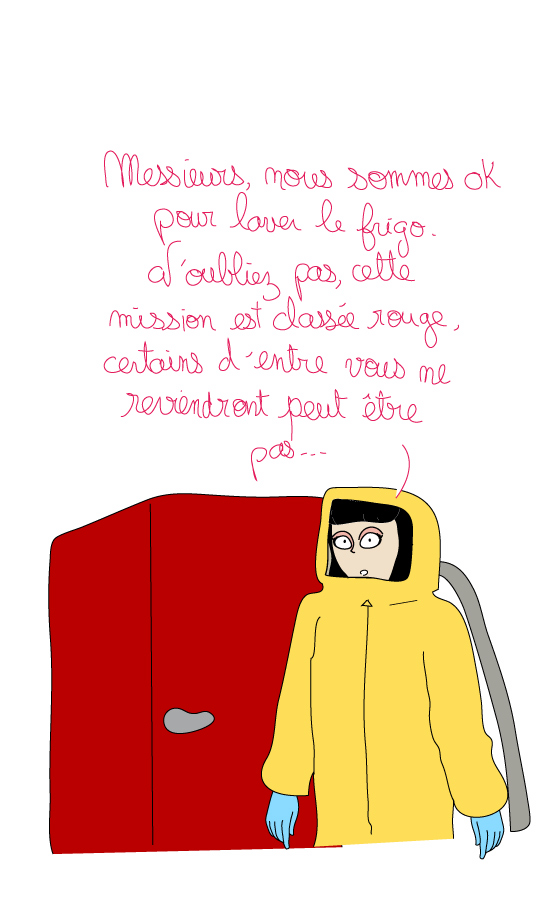 Messieurs, nous sommes ok
pour laver le frigo.
N'oubliez pas, cette
mission est classée rouge,
certains d'entre vous ne
reviendront peut être
pas...